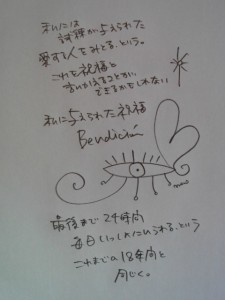 私には
試練が与えられた
愛する人をみとる、という。
これを祝福と
言いかえることが、
できるかもしれない
私に与えられた祝福
Bendición
最後まで24時間
毎日いっしょにいられる、という
これまでの18年間と
同じく。